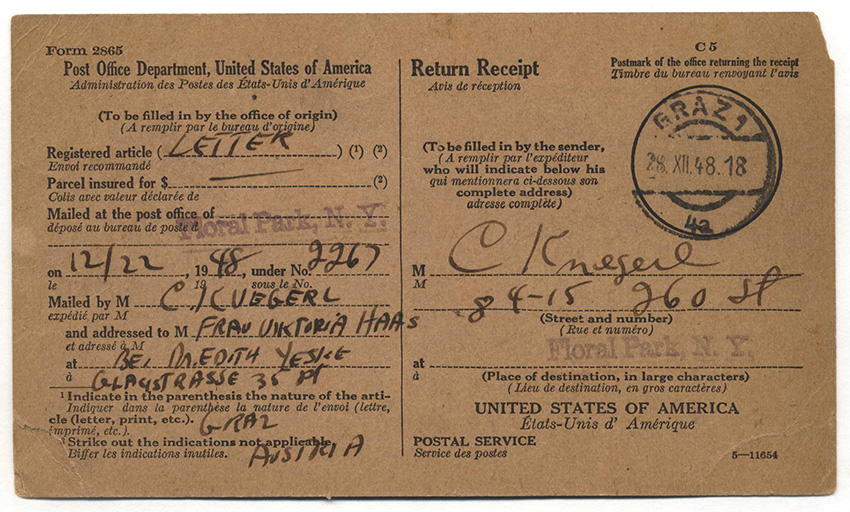 Form 2865
Post Office Department, United States of America
Administration des Postes des États-Unis d'Amérique
(To be filled in by the office of origin)
(A remplir par le bureau d'origine)
Registered article (LETTER) (1) (2)
Envoi recommandé
Parcel insured for $ (2)
Colis avec valeur déclarée de
Mailed at the post office of
Floral Park, N. Y.
déposé au bureau de poste d
on 12/22, 1948, under No. 2267
le 19 sous le No.
Mailed by M C. KUEGERL
expédié par M
and addressed to M FRAU VIKTORIA HAAS
et adressé à M
at BEI DR. EDITH YESKE
à GLACISTRASSE 35 PT
1 Indicate in the parenthesis the nature of the arti-
Indiquer dans la parenthèse la nature de l'envoi (lettre,
cle (letter, print, etc.). GRAZ
imprimé, etc.).
2 Strike out the indications not applicable.
AUSTRIA
Biffer les indications inutiles.
C 5
Return Receipt
Avis de réception
Postmark of the office returning the receipt
Timbre du bureau renvoyant l'avis
GRAZ 1
28. XII. 48. 18
4a
(To be filled in by the sender,
(A remplir par l'expéditeur
who will indicate below his
qui mentionnera ci-dessous son
complete address)
adresse complète)
M C Kuegerl
M
84-15 260 St
(Street and number)
(Rue et numéro)
Floral Park, N. Y.
at
à
(Place of destination, in large characters)
(Lieu de destination, en gros caractères)
UNITED STATES OF AMERICA
États-Unis d' Amérique
POSTAL SERVICE
Service des postes
5—11654